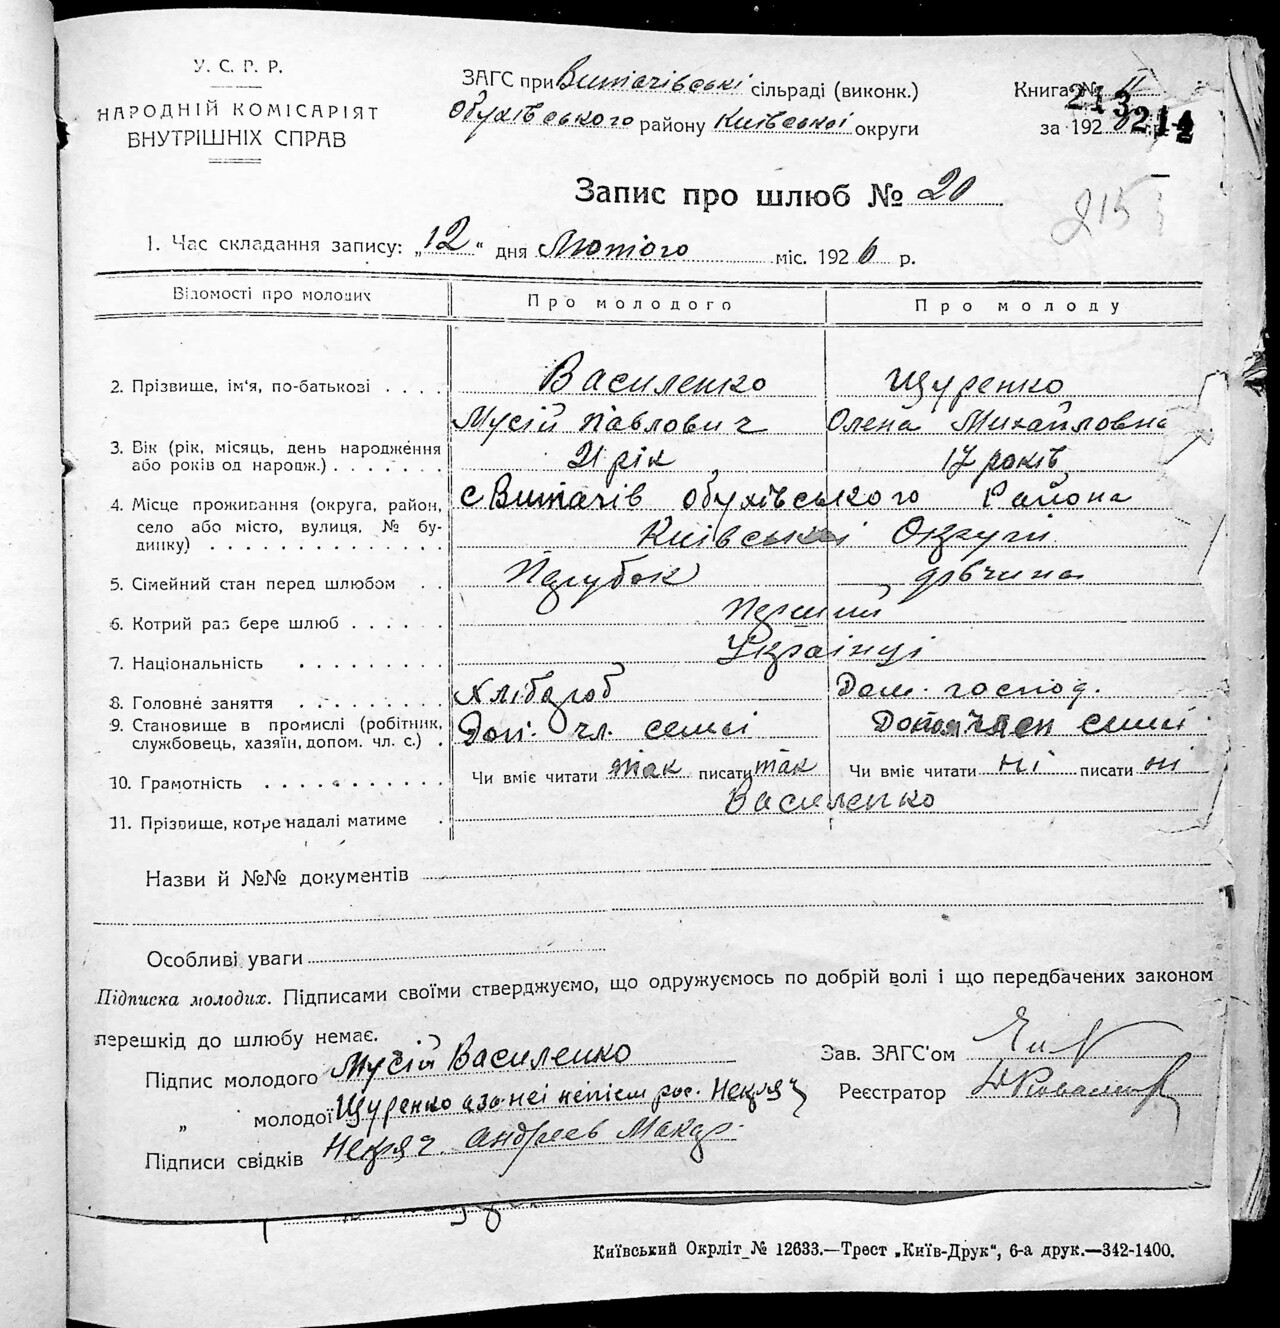 У. С. Р. Р.
НАРОДНІЙ КОМІСАРІЯТ
ВНУТРІШНІХ СПРАВ
ЗАГС при Витачівські сільраді (виконк.)
Обухівського району Київської округи
Книга № II
за 1926 р.
213
214
215
Запис про шлюб № 20
1. Час складання запису: „12“ дня Лютого міс. 1926 р.
Відомості про молодих Про молодого Про молоду
2. Прізвище, ім‘я, по-батькові Василенко Щуренко
Мусій Павлович Олена Михайловна
3. Вік (рік, місяць, день народження
або років од народж.) 21 рік 17 років
4. Місце проживання (округа, район, с Витачів Обухівського Района
село або місто, вулиця, № бу-
динку) Київські Округи
5. Сімейний стан перед шлюбом Парубок дівчина
6. Котрий раз бере шлюб Перший
7. Національність Українці
8. Головне заняття Хлібороб Дом. господ.
9. Становище в промислі (робітник,
службовець, хазяїн, допом. чл. с.) Доп. чл. семьі семьі
10. Грамотність Чи вміє читати так писати так Чи вміє читати ні писати ні
11. Прізвище, котре надалі матиме Василенко
Назви й №№ документів
Особливі уваги
Підписка молодих. Підписами своїми стверджуємо, що одружуємось по добрій волі і що передбачених законом
перешкід до шлюбу немає.
Підпис молодого Мусій Василенко
Зав. ЗАГС'ом
„ молодої Щуренко а за неї непісм рос. Некряч
Реєстратор
Підписи свідків Некряч Андреев Макар
Київський Окрліт № 12633.—Трест „Київ-Друк“, 6-а друк.—342-1400.